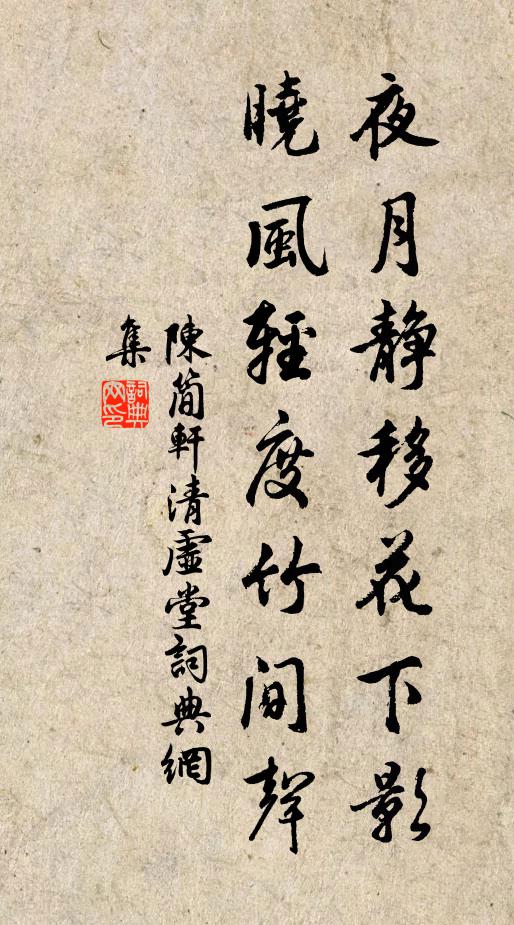 夜月靜移花下影
曉風輕度竹間聲
陳簡軒清虛堂詞典網
集
詞典
网印